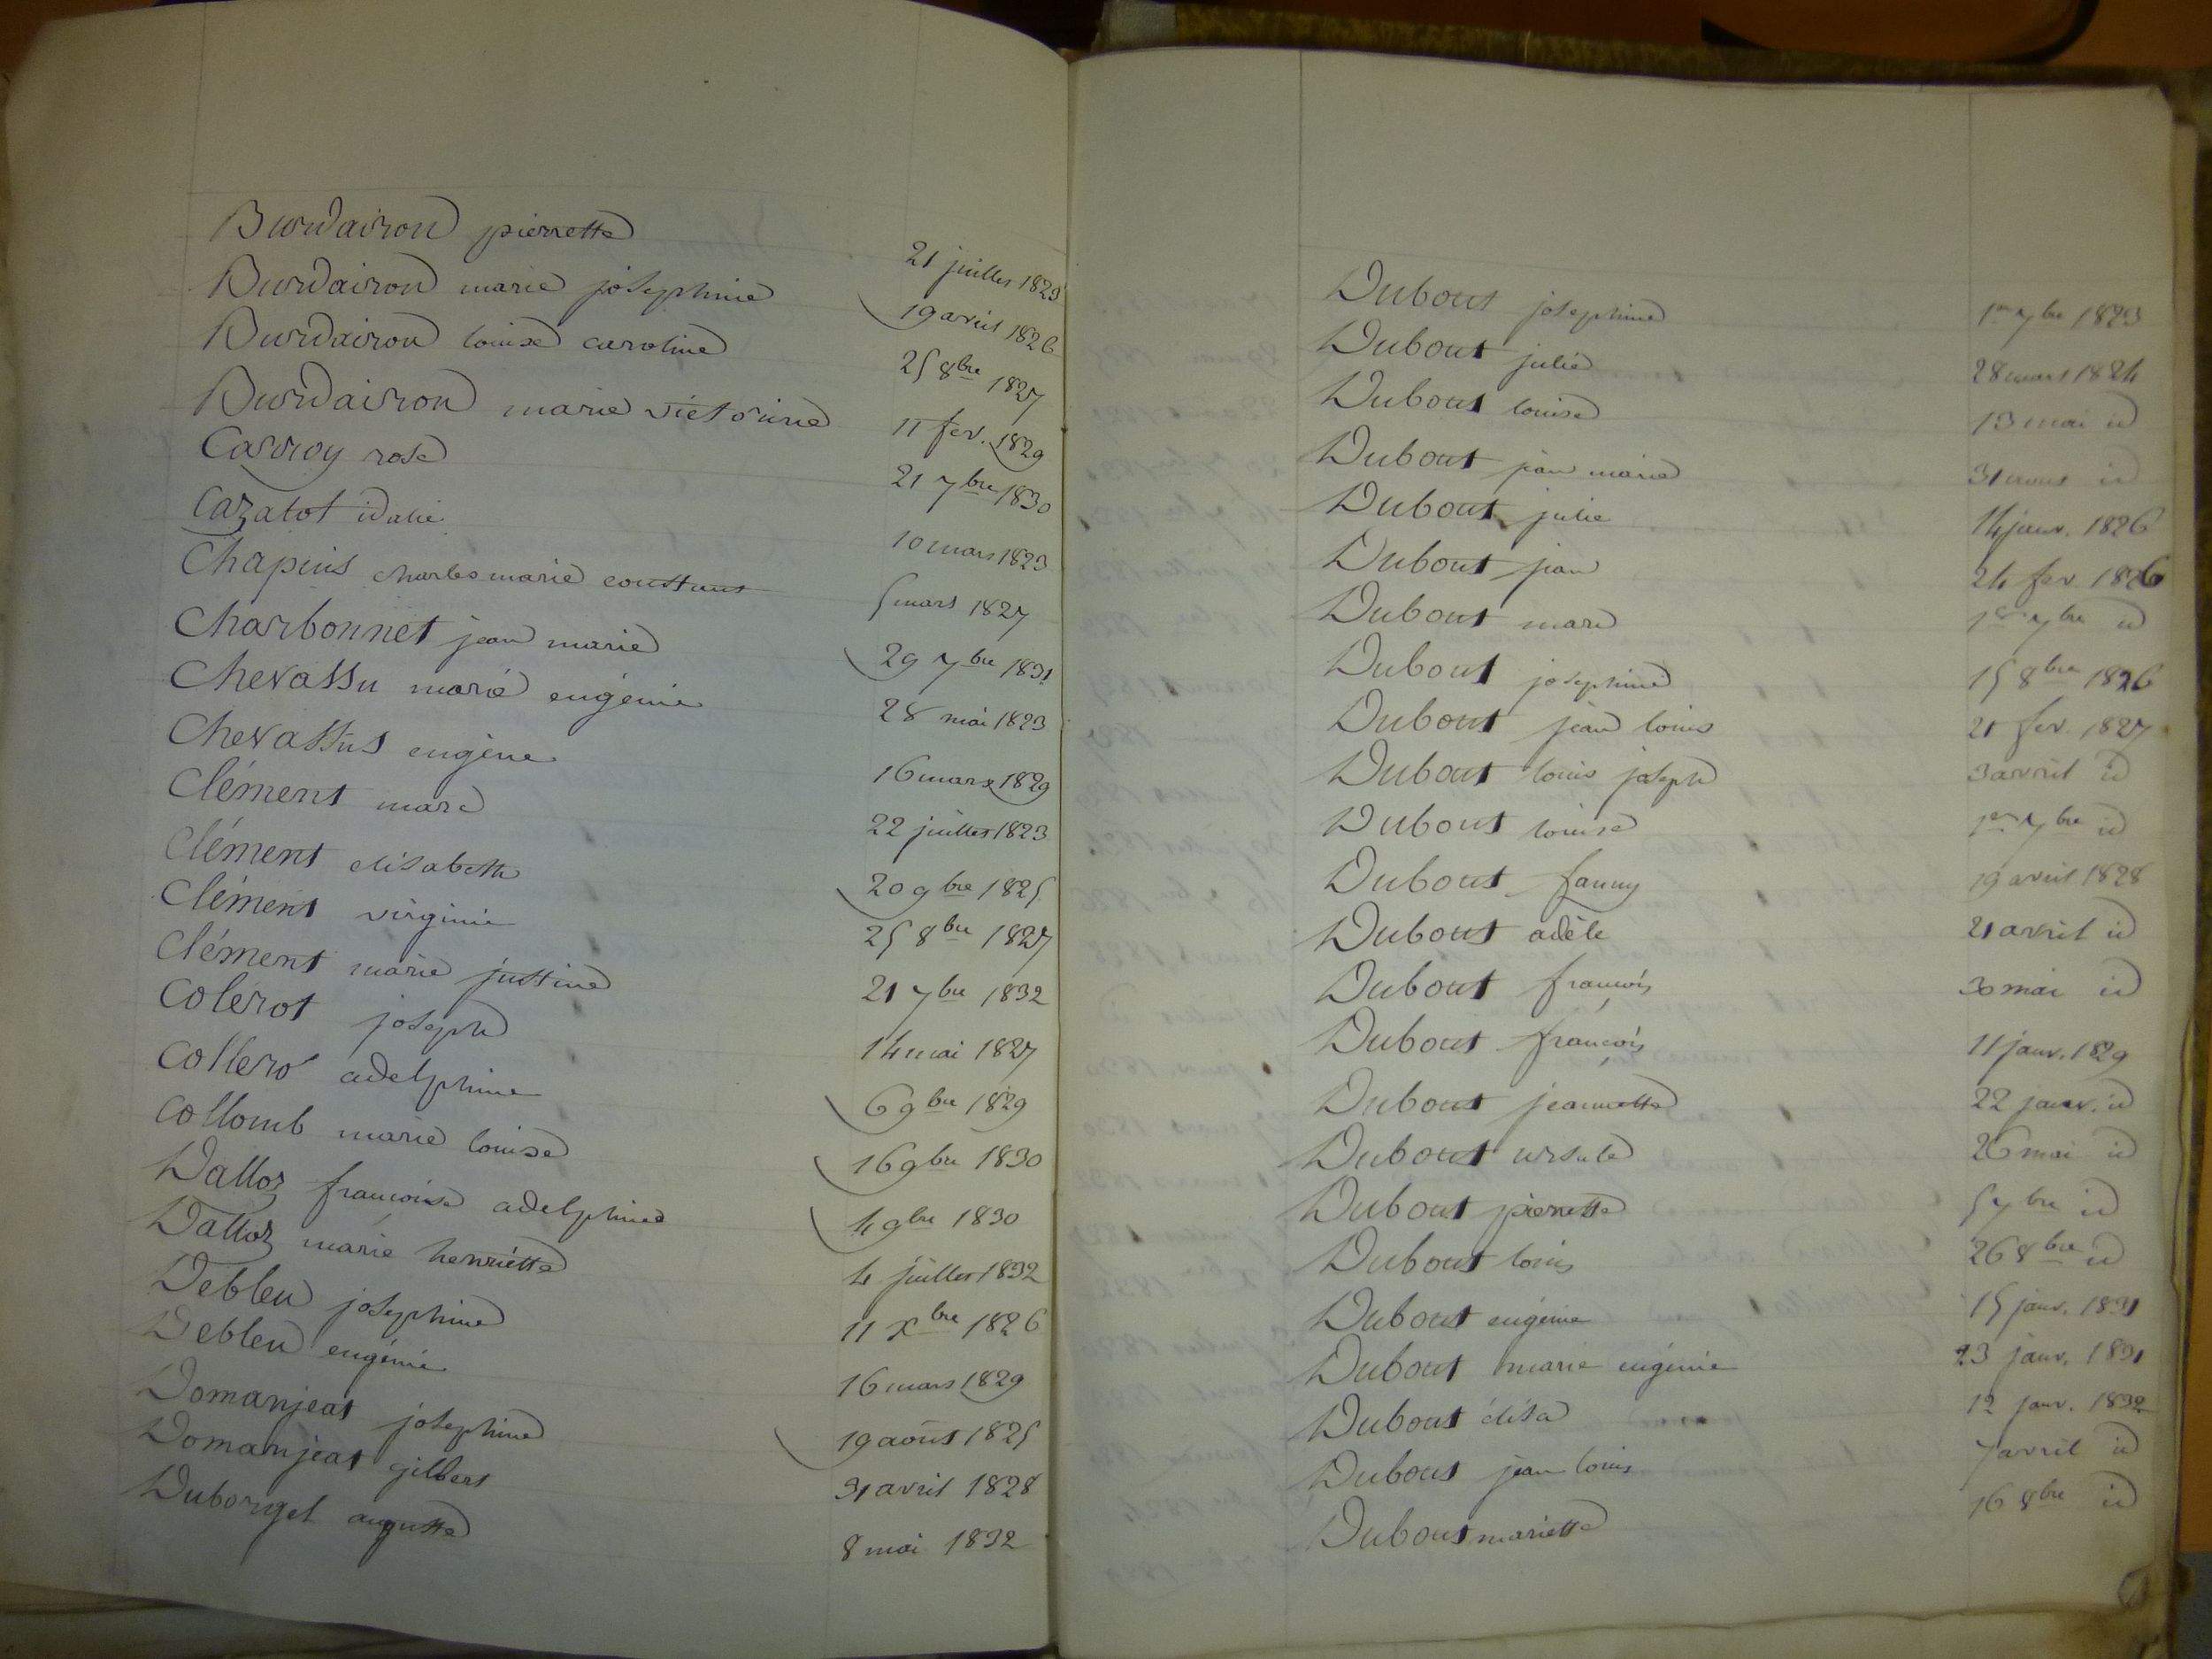 Burdairon pierrette 21 juillet 1823
Burdairon marie joséphine 19 avril 1826
Burdairon louise caroline 25 8bre 1827
Burdairon marie victorine 11 fev. 1829
Carroy rose 21 7bre 1830
Cazalot idalie 10 mars 1823
Chapuis charles marie constant 5 mars 1827
Charbonnet jean marie 29 7bre 1831
Chevassu marie eugénie 28 mai 1823
Chevassus eugène 16 mars 1829
Clément marc 22 juillet 1823
Clément elisabeth 20 9bre 1825
Clément virginie 25 8bre 1827
Clément marie justine 21 7bre 1832
Colérot joseph 14 mai 1827
Collero adelphine 6 9bre 1829
Collomb marie louise 16 9bre 1830
Dalloz francoise adelphine 4 9bre 1830
Dalloz marie henriette 4 juillet 1832
Debleu joséphine 11 Xbre 1826
Debleu eugénie 16 mars 1829
Domanjeat joséphine 19 août 1825
Domanjeat gilbert 31 avril 1828
Duborgel auguste 8 mai 1832
Dubout joséphine 1er 7bre 1823
Dubout julie 28 mars 1824
Dubout louise 13 mai id
Dubout jean marie 31 id
Dubout julie 14 janv. 1826
Dubout jean 24 fev 1826
Dubout marc 1er 7bre id
Dubout joséphine 15 8bre 1826
Dubout jean louis 21 fev. 1827
Dubout louis joseph 3 avril id
Dubout louise 1er 7bre id
Dubout fanny 19 avril 1828
Dubout adèle 21 avril id
Dubout françois 30 mai id
Dubout françois 11 janv. 1829
Dubout jeannette 22 janv. id
Dubout ursule 26 mai id
Dubout pierrette 5 7bre id
Dubout louis 26 8bre id
Dubout eugénie 15 janv. 1831
Dubout marie eugénie 23 janv. 1831
Dubout élisa 12 janv. 1832
Dubout jean louis 7 avril id
Dubout mariette 16 8bre id